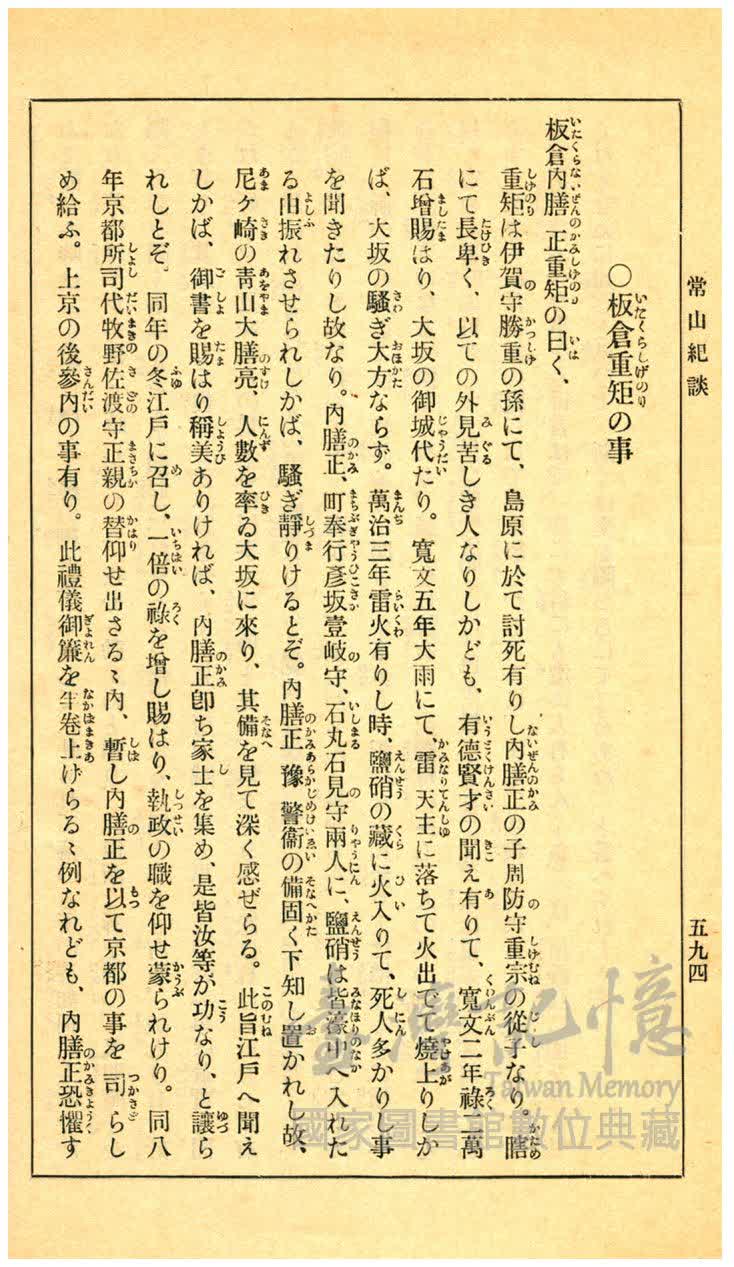 常山紀談
五九四
〇板倉重矩の事
板倉内膳正重矩の曰く、
重矩は伊賀守勝重の孫にて、島原に於て討死有りし内膳正の子周防守重宗の從子なり。瞎
にて長卑く、以ての外見苦しき人なりしかども、有德賢才の聞え有りて、寬文二年祿二萬
石增賜はり、大坂の御城代たり。寬文五年大雨にて、雷天主に落ちて火出でて燒上りしか
ば、大坂の騷ぎ大方ならず。萬治三年雷火有りし時、鹽硝の藏に火入りて、死人多かりし事
を聞きたりし故なり。内膳正、町奉行彥坂壹岐守、石丸石見守兩人に、鹽硝は皆濠中へ入れた
る由振れさせられしかば、騷ぎ靜りけるとぞ。内膳正豫警衞の備固く下知し置かれし故、
尼ヶ崎の靑山大膳亮、人數を率ゐ大坂に來り、其備を見て深く感ぜらる。此旨江戶へ聞え
しかば、御書を賜はり稱美ありければ、内膳正卽ち家士を集め、是皆汝等が功なり、と讓ら
れしとぞ。同年の冬江戶に召し、一倍の祿を增し賜はり、執政の職を仰せ蒙られけり。同八
年京都所司代牧野佐渡守正親の替仰せ出さるゝ内、暫し内膳正を以て京都の事を司らし
め給ふ。上京の後參内の事有り。此禮儀御簾を半卷上げらるゝ例なれども、内膳正恐懼す
臺灣記憶
Taiwan Memory
國家圖書館數位典藏